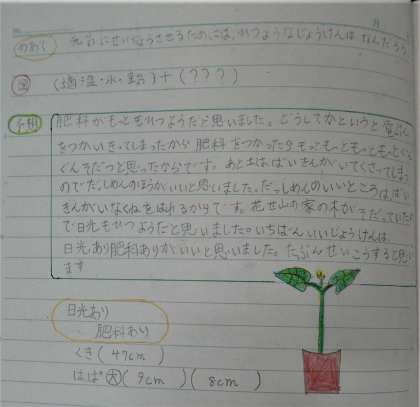 月
めあて 元気にせいちょうさせるためには、ひつようなじょうけんは なんだろう
(適温・水・空気)+(???)
予想 肥料がもっともひつようだと思いました。どうしてかというと
をつかいきってしまったから 肥料をつかったらもっともっともっともっと
ぐんそだつと思ったからです。あと土はばいきんがいてくさってしまう
のでだっしめんのほうがいいと思いました。だっしめんのいいところはばい
きんがいなくねをはれるからです。 の家の木がそだっていたの
で日光もひつようだと思いました。いちばんいいじょうけんは
日光あり肥料ありがいいと思いました。たぶんせいこうすると思い
ます
日光あり
肥料あり
くき(47cm)
はば 大(9cm)(8cm)